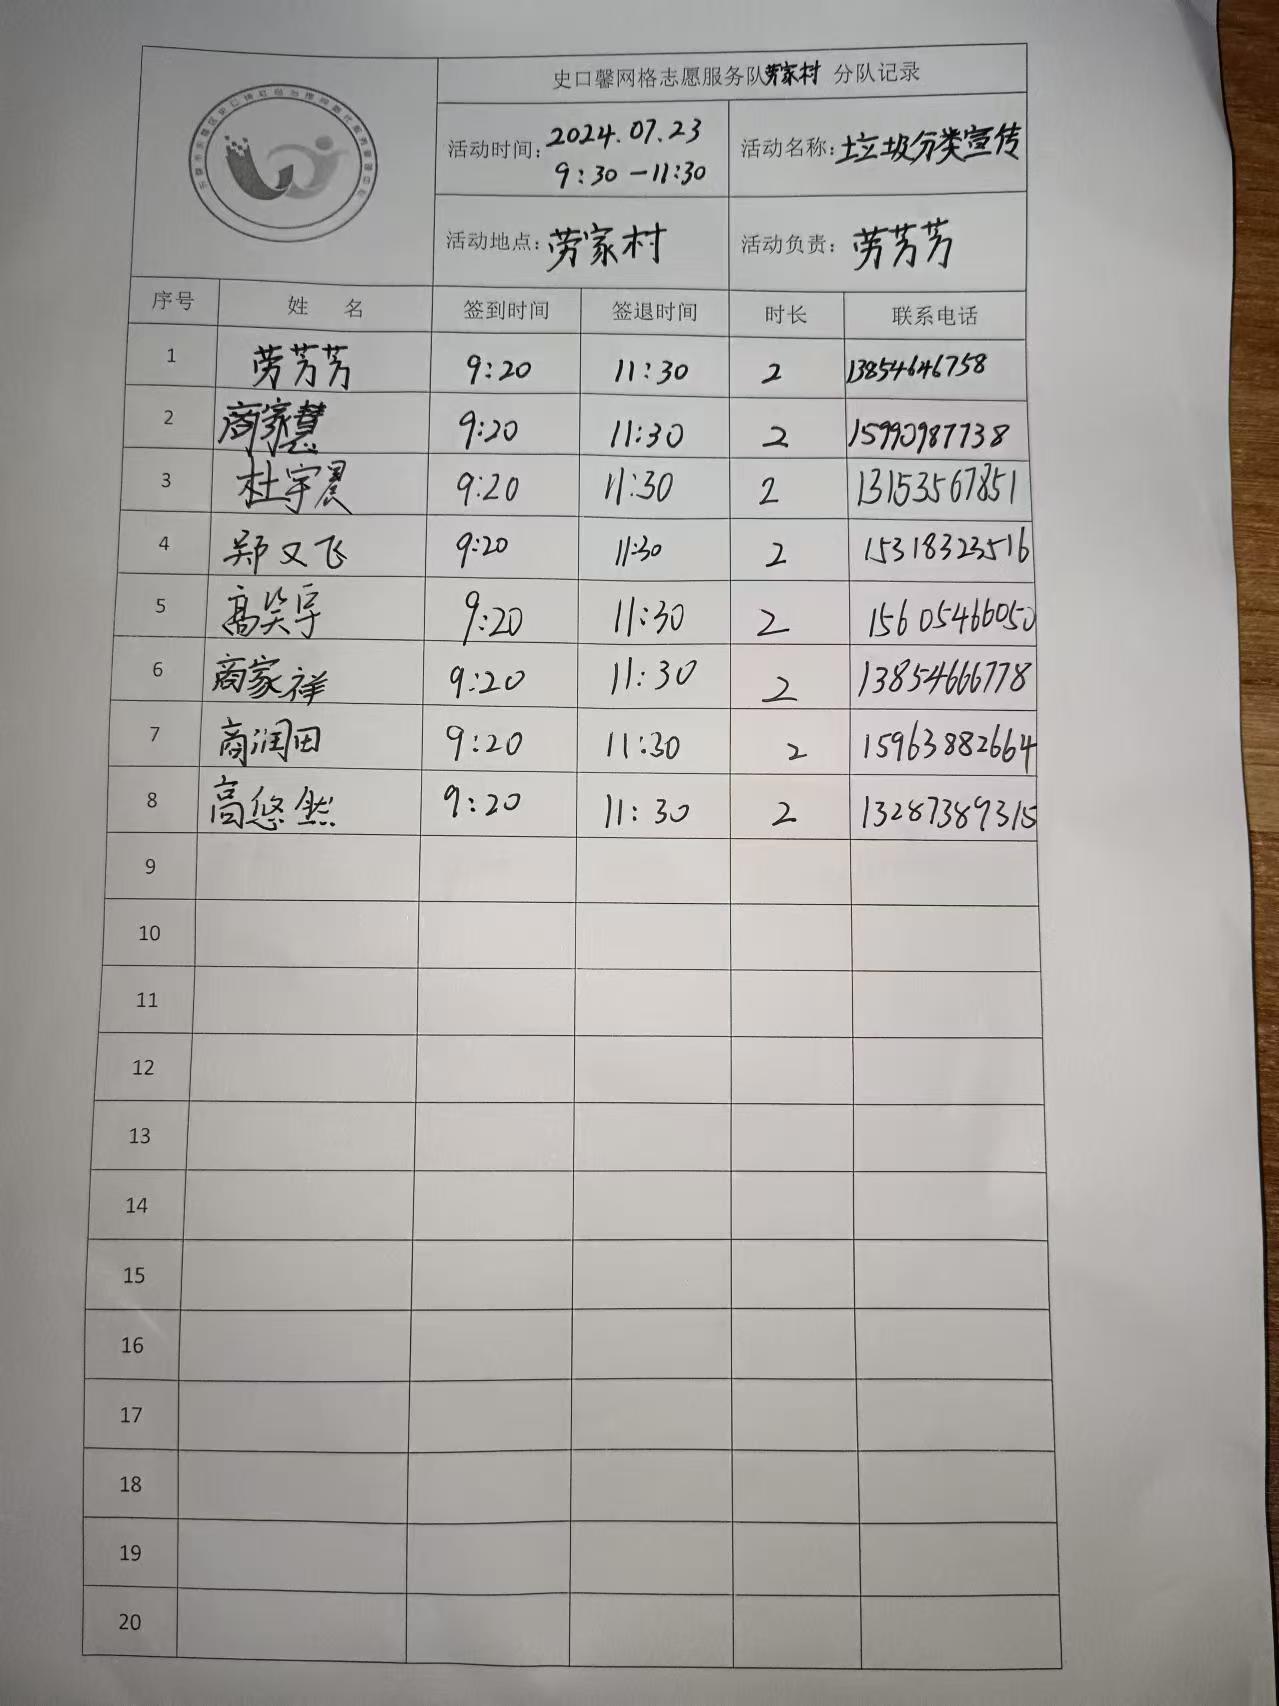 史口馨网格志愿服务队劳家村 分队记录
活动时间: 2024.07.23
9:30-11:30
活动名称: 垃圾分类宣传
活动地点: 劳家村
活动负责: 劳芳芳
序号 姓名 签到时间 签退时间 时长 联系电话
1 劳芳芳 9:20 11:30 2 13854646758
2 商家慧 9:20 11:30 2 15990987738
3 杜宇晨 9:20 11:30 2 13153567851
4 郑又飞 9:20 11:30 2 15318323516
5 高笑宇 9:20 11:30 2 15605466050
6 商家祥 9:20 11:30 2 13854666778
7 商润田 9:20 11:30 2 15963882664
8 高悠然 9:20 11:30 2 13287389315
9
10
11
12
13
14
15
16
17
18
19
20